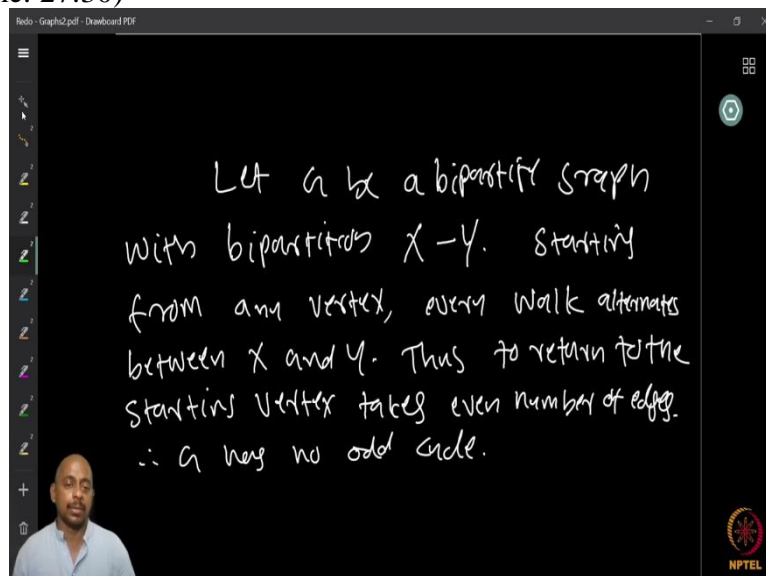 Redo - Graphs2.pdf - Drawboard PDF
Let G be a bipartite graph
with bipartition X-Y. Starting
from any vertex, every walk alternates
between X and Y. Thus to return to the
starting vertex takes even number of edges.
∴ G has no odd cycle.
NPTEL